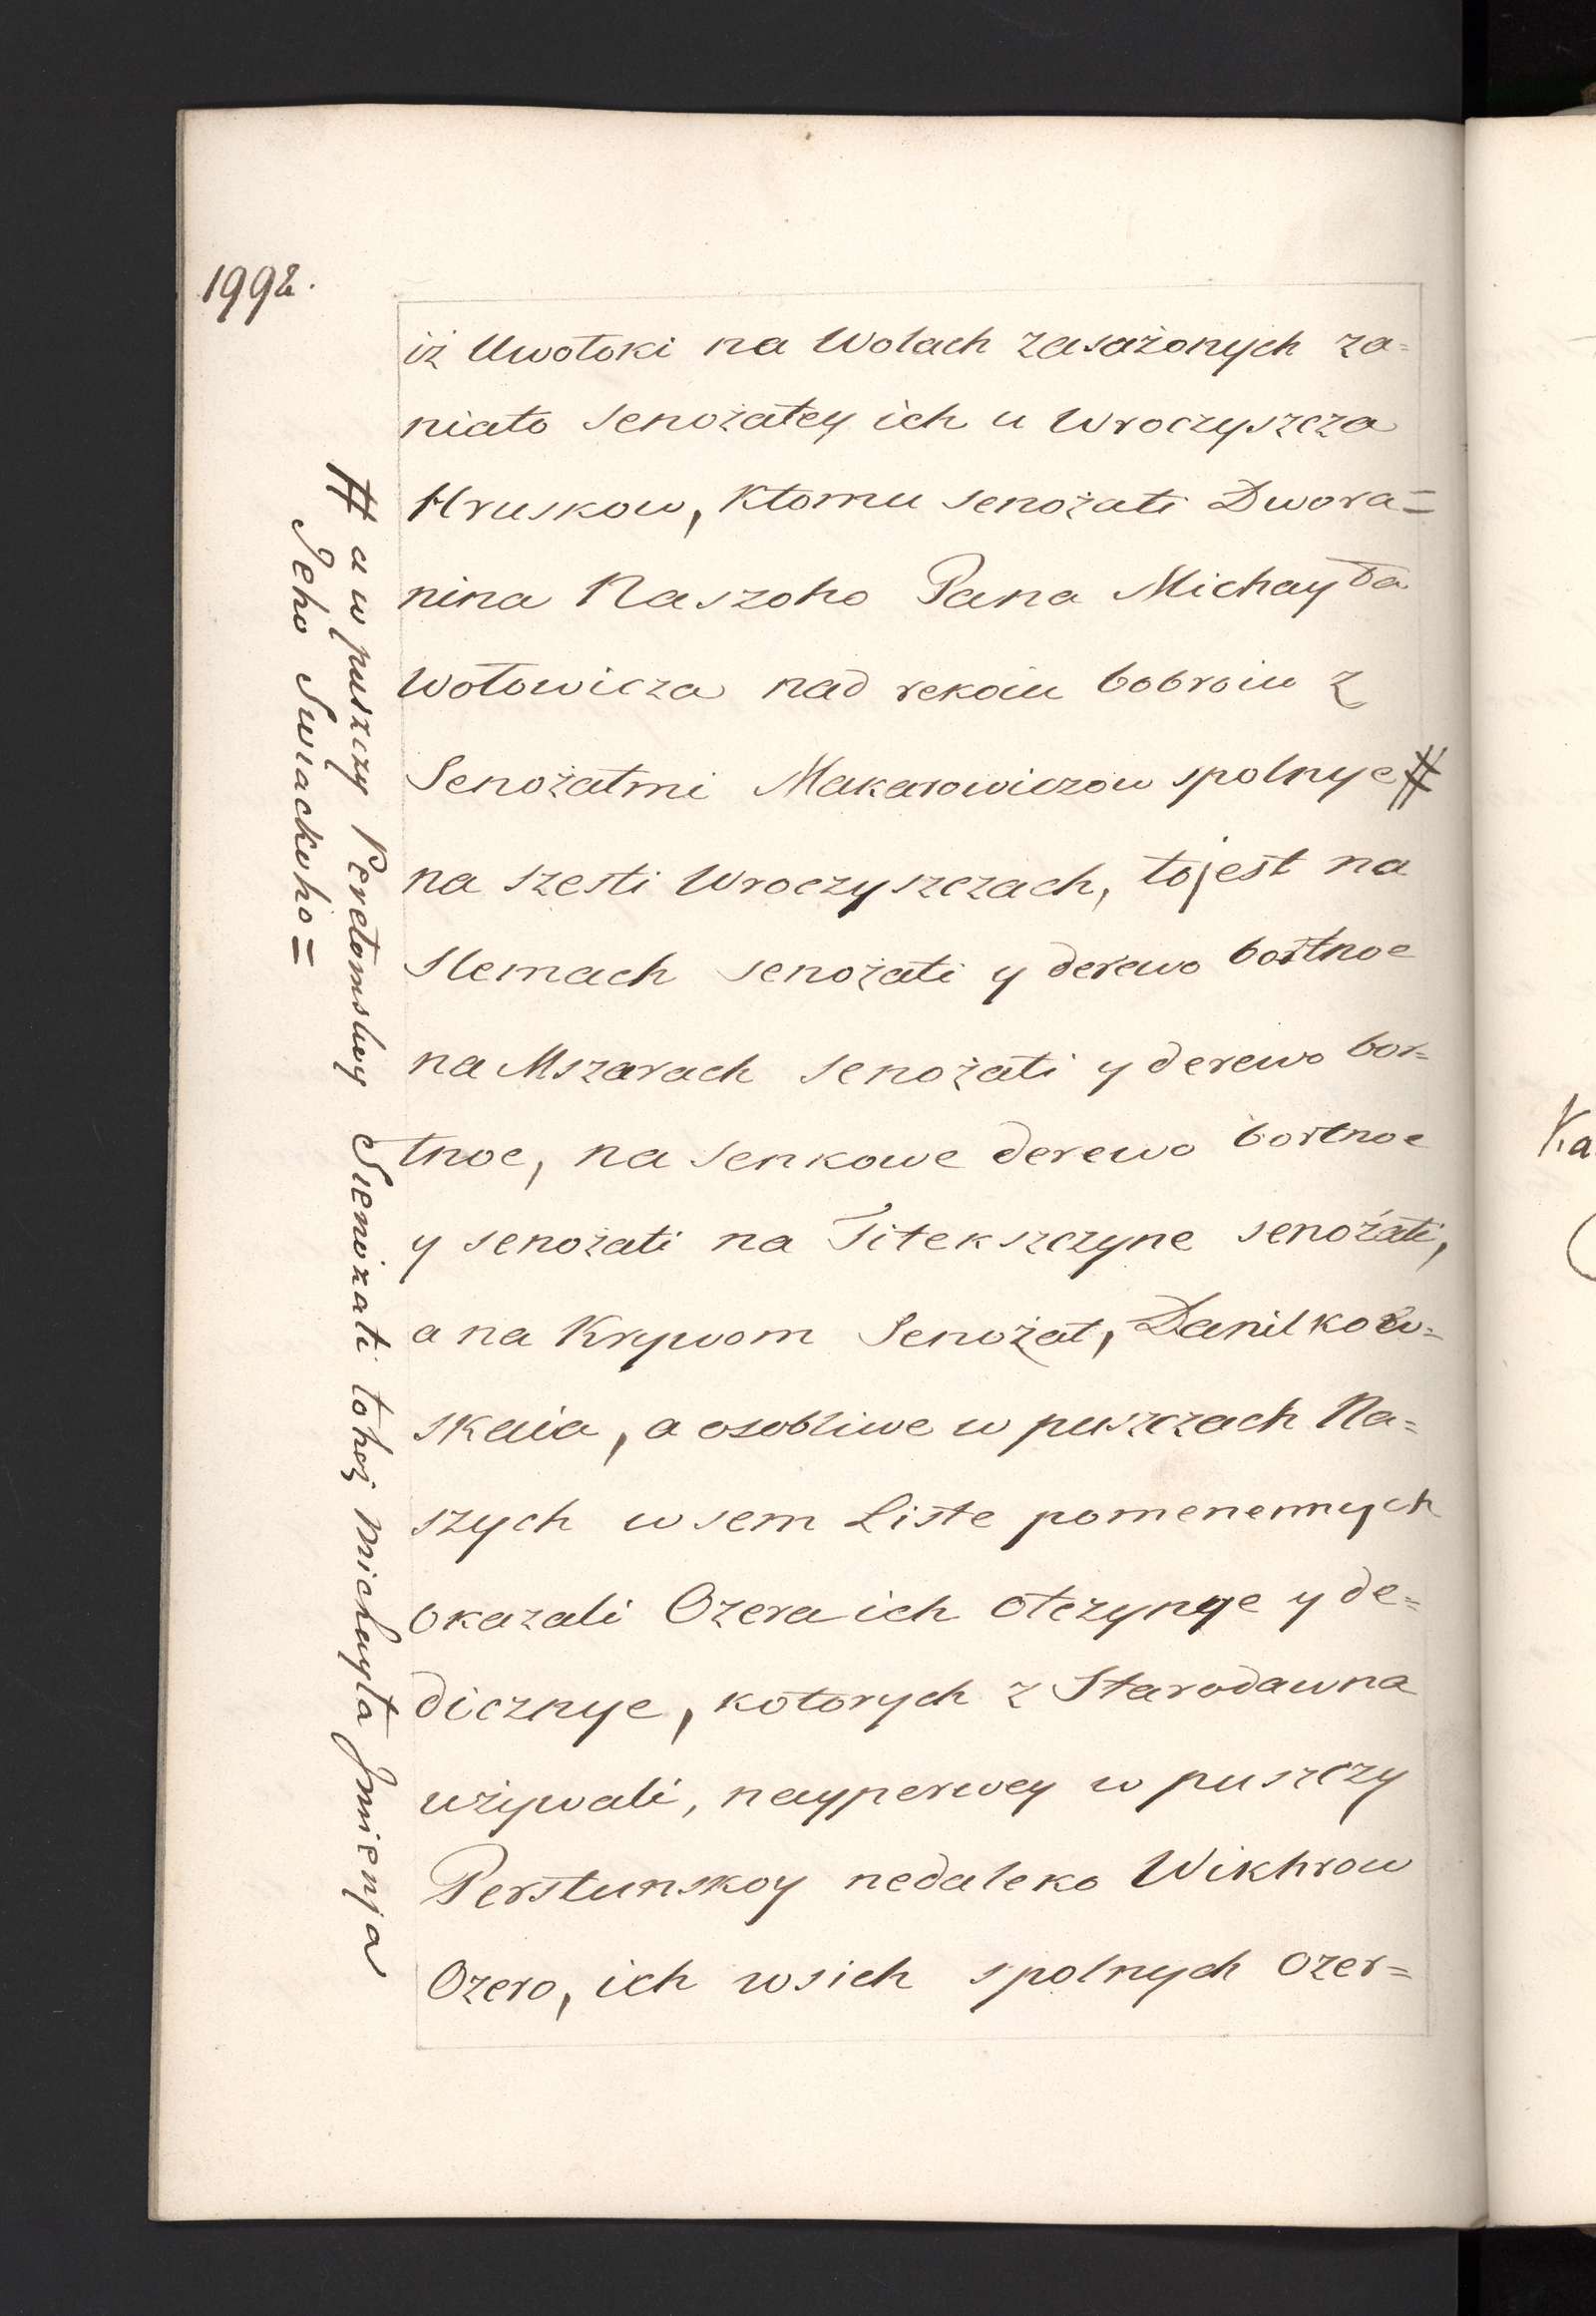 1992.
iż Uwołoki na Wolach zasażonych za=
niato senożatey ich u Wroczyszcza
Hruskow, Ktomu senożati Dwora=
nina Naszoho Pana Michayła
Wołowicza nad rekoiu bobroiu z
Senożatmi Makarowiczow spolnye #
na szesti Wroczyszczach, to jest na
Slemach senożati y derewo bortnoe
na Mszarach senożati y derewo bor=
tnoe, na senkowe derewo bortnoe
y senożati na Titekszczyne senożati,
a na Krywom Senożat, Danilkow=
skaia, a osobliwe w puszczach Na=
szych w sem Liste pomenennych
okazali Ozera ich otczynye y de=
dicznye, kotorych z Starodawna
używali, nayperwey w puszczy
Perstunskoy nedaleko Wikhrow
Ozero, ich wsich spolnych ozer=
# a w puszczy Peretomskey Sienożati tohoż Michayła Jmienja
Jeho Swiackoho=
Ka